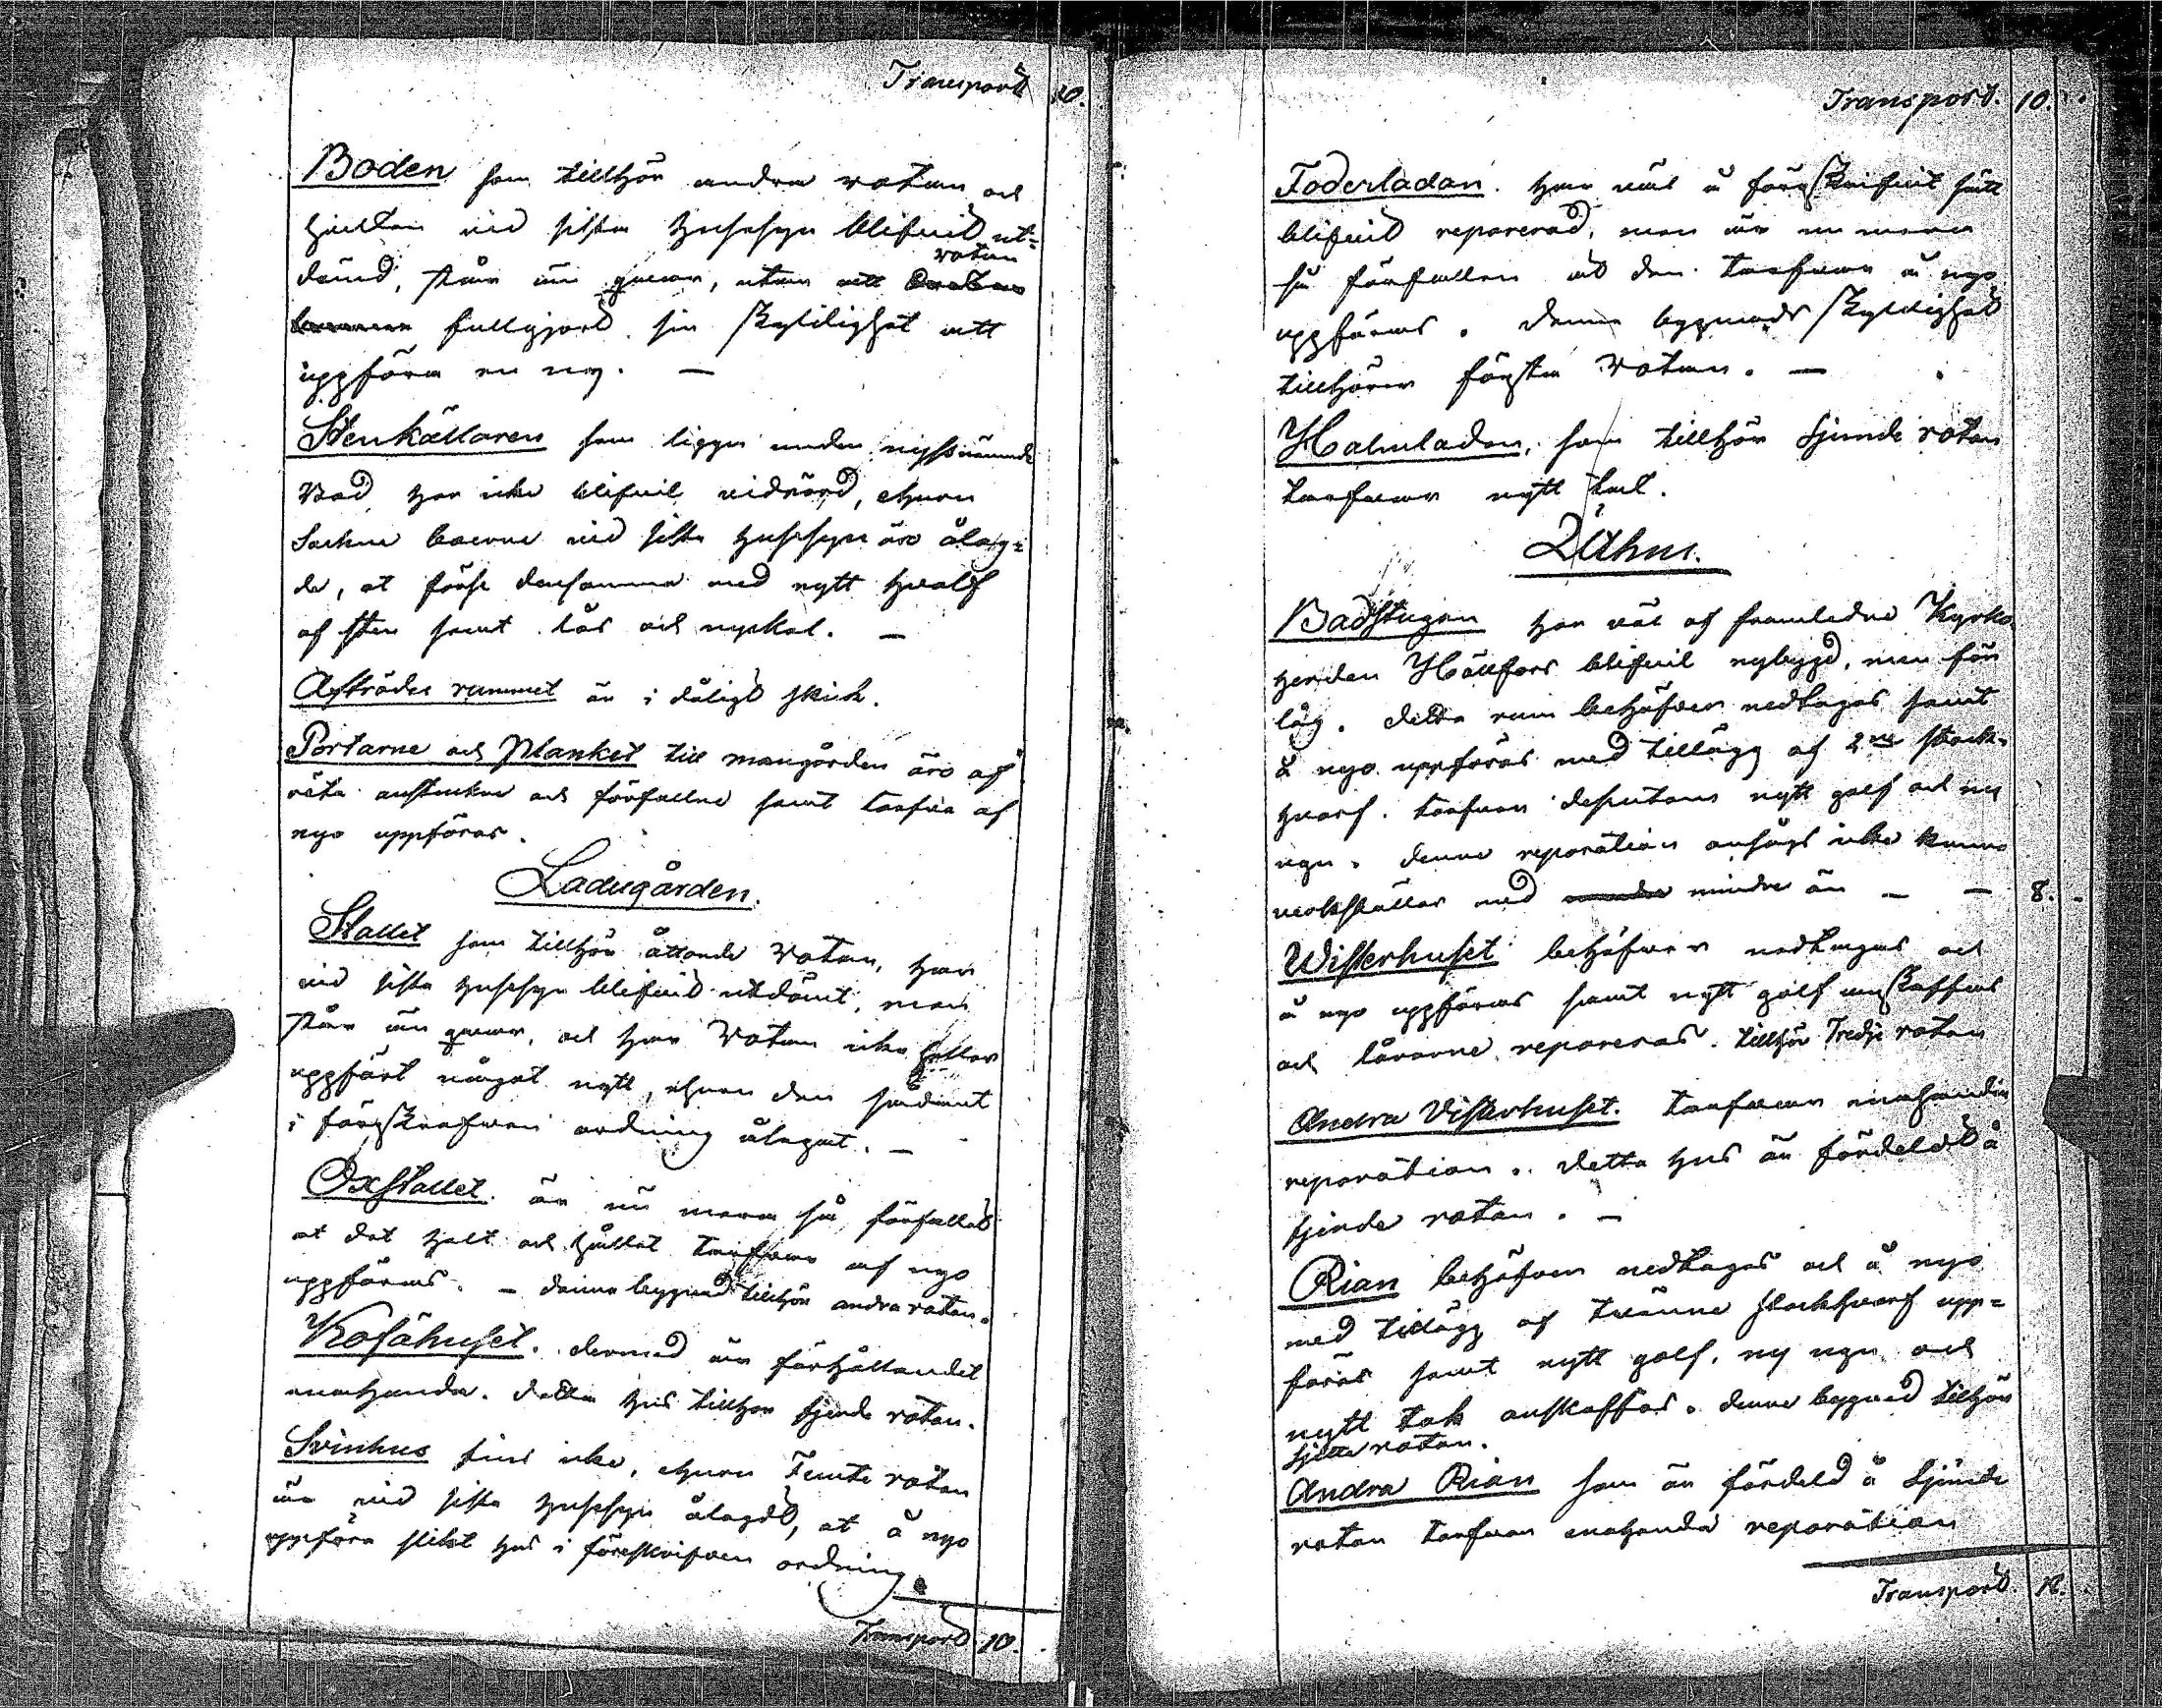 Transport 10.
Boden som tillhör andra rotan och
hvilken vid sista Husesyn blifvit ut=
dömd, står än qvar, utan att rotan
fullgjort sin skyldighet att
uppföra en ny. —
Stenkällaren som ligger under nyssnämnde
Bod, har icke blifvit vidrörd, ehuru
Sockne boerne vid sista Husesyn äro ålag=
de, at förse densamma med nytt hvalf
af sten samt lås och nyckel. —
Afträdes rummet är i dåligt skick.
Portarne och Planket till mangården äro af
röta anstuckne och förfallne samt tarfva af
nyo uppföras.
Ladugården.
Stallet som tillhör åttonde Rotan, har
vid sista Husesyn blifvit utdömt, men
står än qvar, och har Rotan icke heller
uppfört något nytt, ehuru den sådant
i föreskrefven ordning ålegat. —
Oxstallet är nu mera så förfallet
at det helt och hållet tarfvar af nyo
uppföras. — denna byggnad tillhör andra rotan.
Kofähuset. dermed är förhållandet
enahanda. detta hus tillhör fjerde rotan.
Svinhus fins icke, ehuru Femte rotan
är vid sista Husesyn ålagdt, at å nyo
uppföra slikt hus i föreskrifven ordning.
Transport 10.
Transport. 10.
Foderladan. har väl å föreskrifvit sätt
blifvit reparerad, men är nu mera
så förfallen at den tarfvar å nyo
uppföras. Denna byggnads skyldighet
tillhörer första Rotan. —
Halmladan, som tillhör Sjunde rotan
tarfvar nytt tak.
Uthus.
Badstugan har väl af framledne Kyrko
herden Hällfors blifvit nybygd, men för
låg. detta rum behöfver nedtagas samt
å nyo uppföras med tillägg af 2ne stock=
hvarf. tarfvar dessutom nytt golf och ny
ugn. denne reparation ansågs icke kunna
verkställas med mindre än — — 8.
Wisterhuset behöfver nedtagas och
å nyo uppföras samt nytt golf anskaffas
och lårarne repareras. tillhör Tredje rotan
Andra Visterhuset. tarfvar enahanda
reparation. detta hus är fördeldt å
fjerde rotan. —
Rian behöfver nedtagas och å nyo
med tillägg af tvänne stockhvarf upp=
föras samt nytt golf, ny ugn och
nytt tak anskaffas. denne byggnad tillhör
sjette rotan.
Andra Rian som är fördeld å Sjunde
rotan tarfvar enahanda reparation
Transport 18.